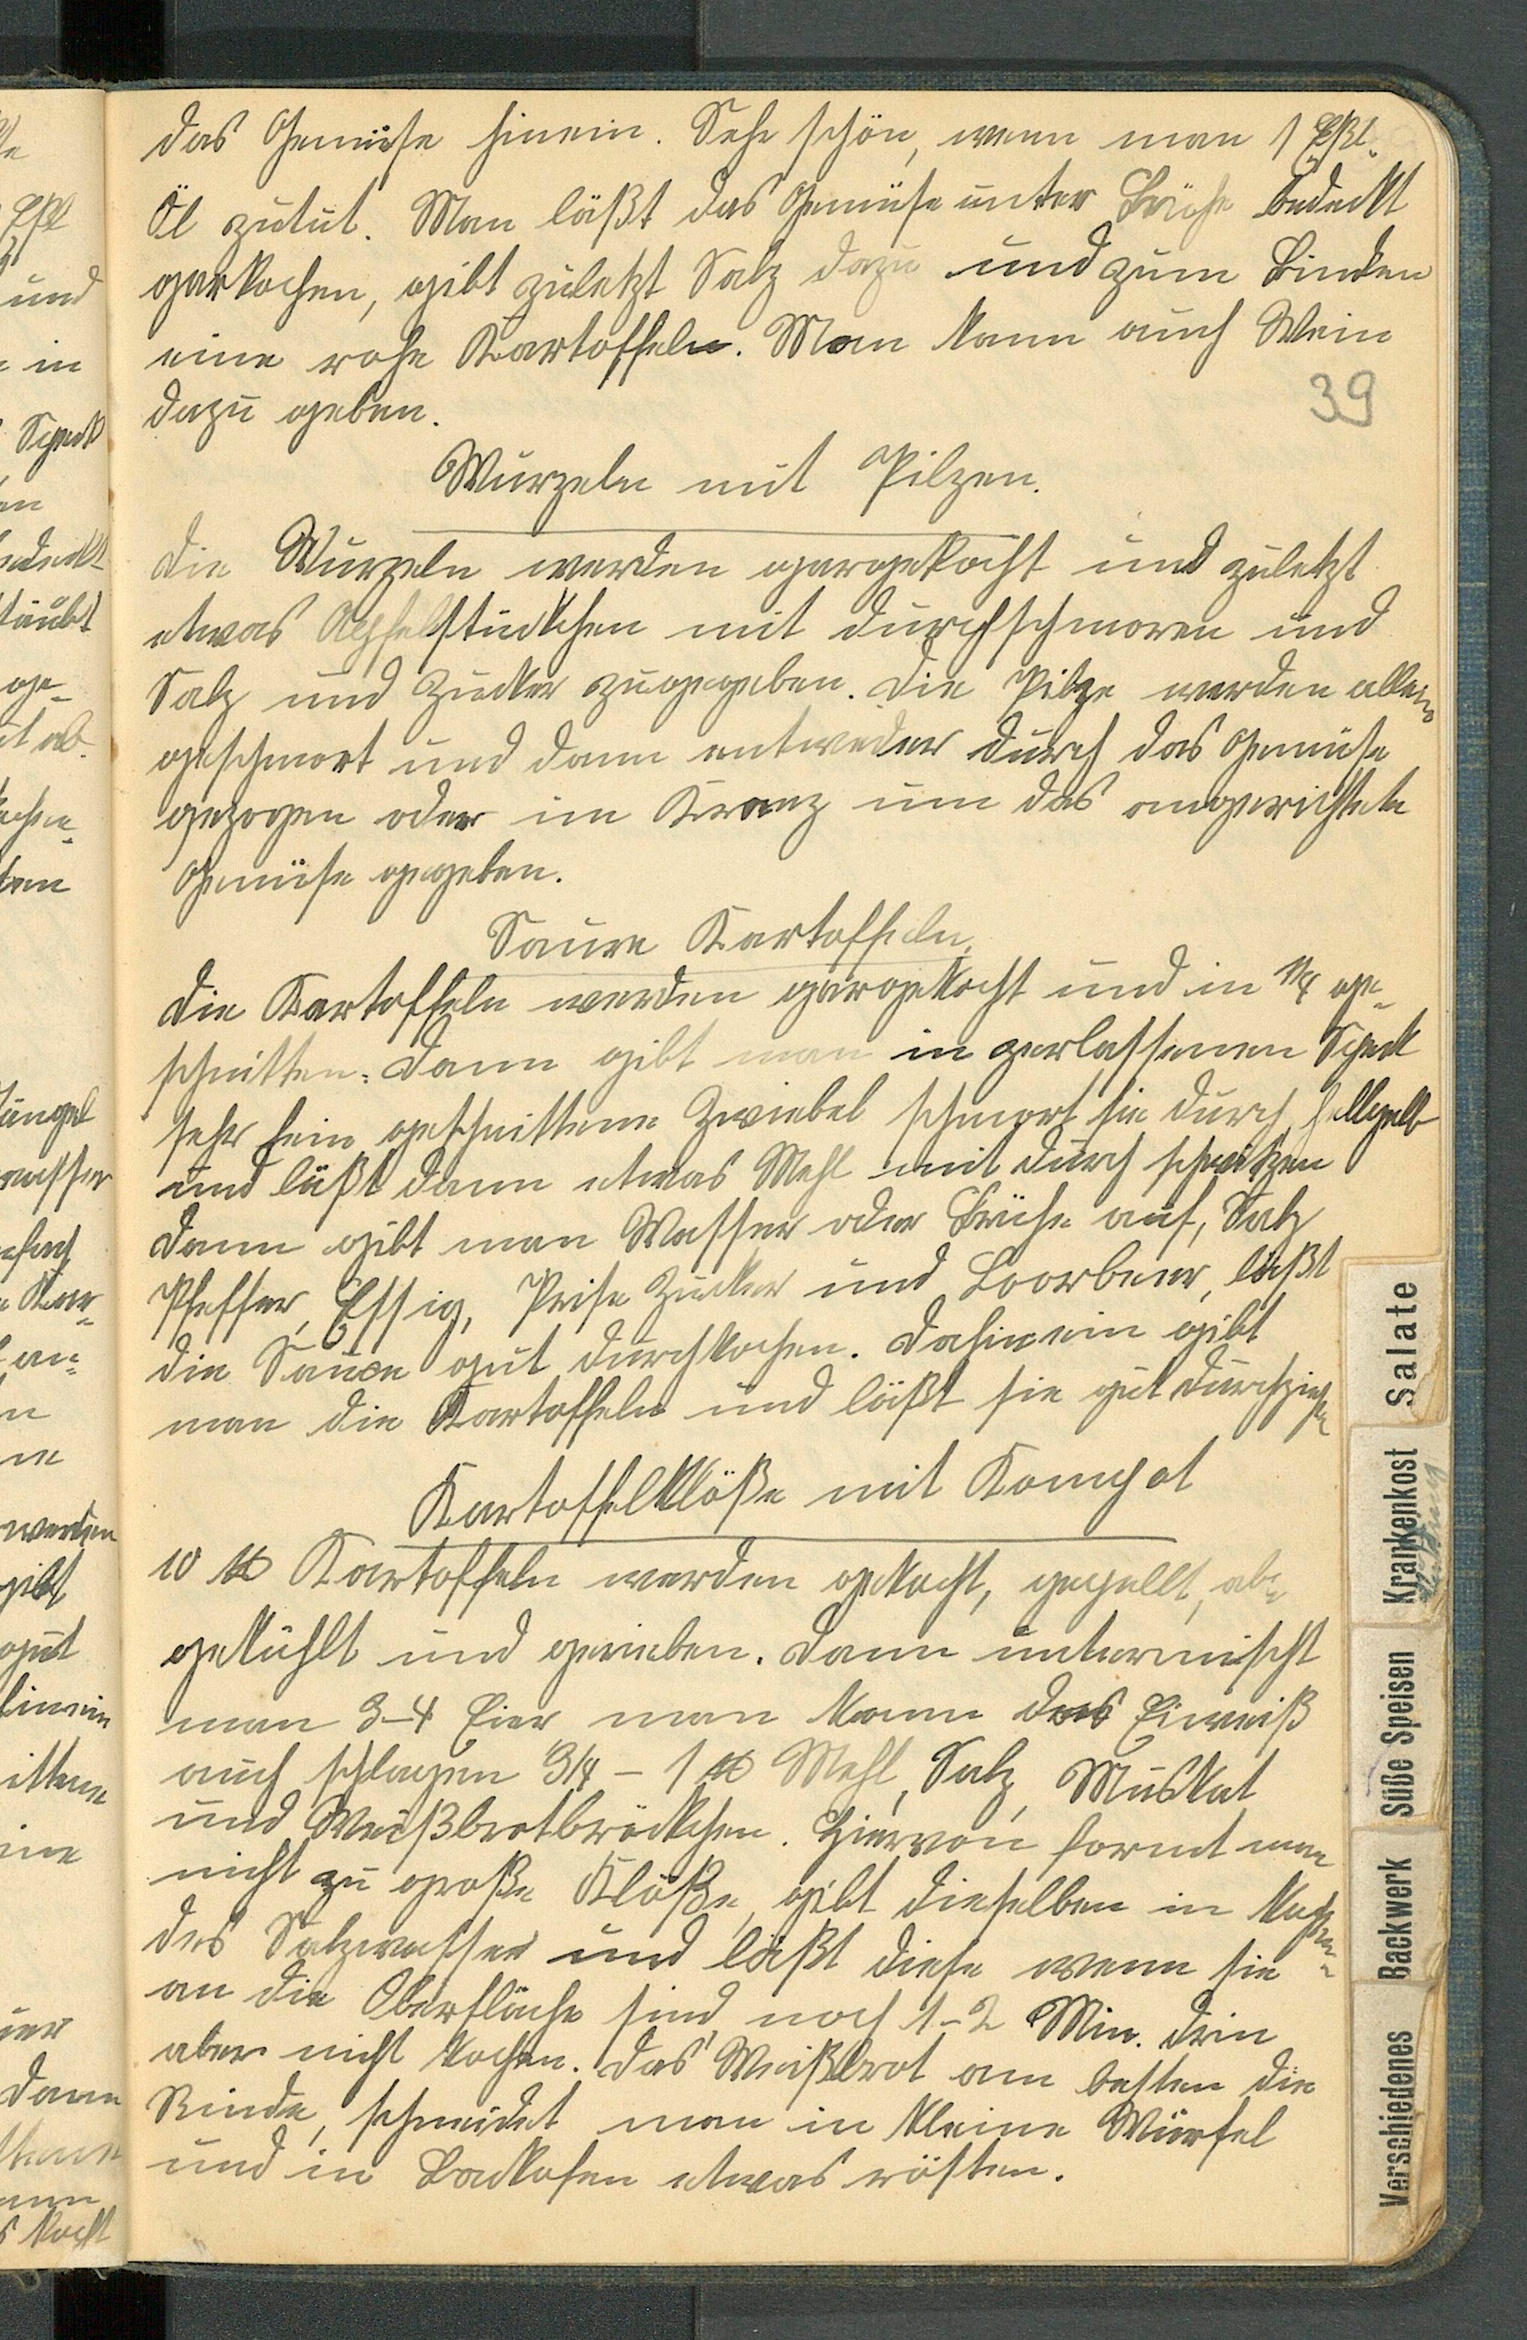 das Gemüse hinein. Sehr schön, wenn man 1 Eßl.
Öl zutut. Man läßt das Gemüse unter Brühe bedeckt
garkochen, gibt zuletzt Salz dazu und zum Binden
eine rohe Kartoffeln. Man kann auch Wein
dazu geben.
39
Wurzeln mit Pilzen.
Die Wurzeln werden gargekocht und zuletzt
etwas Apfelstückchen mit durchschmoren und
Salz und Zucker zugegeben. Die Pilze werden allein
geschmort und dann entweder durch das Gemüse
gezogen oder im Kranz um das angerichtete
Gemüse gegeben.
Saure Kartoffeln.
Die Kartoffeln werden gargekocht und in 1/4 ge-
schnitten. Dann gibt man in zerlassenen Speck
sehr fein geschnittene Zwiebel schmort sie durch, hellgelb
und läßt dann etwas Mehl mit durch schwitzen
Dann gibt man Wasser oder Brühe auf, Salz
Pfeffer, Essig, Prise Zucker und Loorbeer, läßt
die Sauce gut durchkochen. Dahinein gibt
man die Kartoffeln und läßt sie gut durchziehen
Kartoffelklöße mit Kompot
10 ℔ Kartoffeln werden gekocht, gepellt, ab-
gekühlt und gerieben. Dann untermischt
man 3-4 Eier man kann das Eiweiß
auch schlagen 3/4 - 1 ℔ Mehl, Salz, Muskat
und Weißbrotbröckchen. Hiervon formt man
nicht zu große Klöße, gibt dieselben in kochen-
des Salzwasser und läßt diese wenn sie
an die Oberfläche sind, noch 1-2 Min. drin
aber nicht kochen. Das Weißbrot am besten die
Rinde, schneidet man in kleine Würfel
und in Backofen etwas rösten.
Salate
Krankenkost
Süße Speisen
Backwerk
Verschiedenes